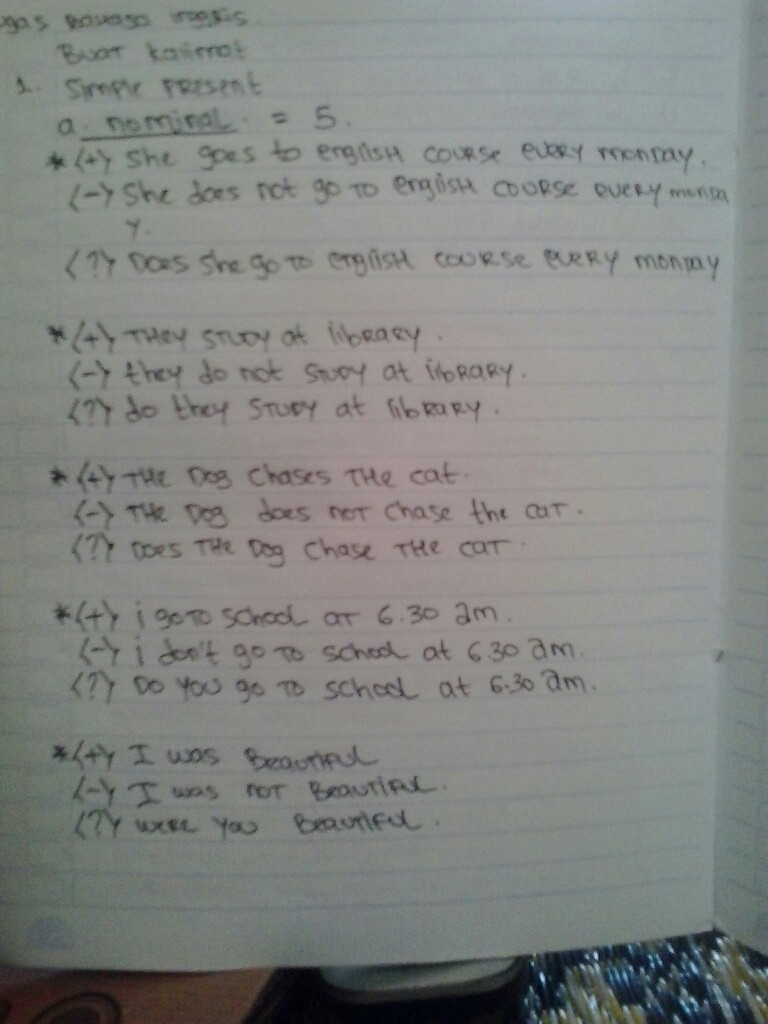 gas Bahasa Inggris
Buat kalimat
1. Simple Present
a. nominal = 5.
* (+) She goes to english course every monday.
(-) She does not go to english course every monda
y.
(?) Does she go to english course every monday
* (+) They study at library.
(-) they do not study at library.
(?) do they study at library.
* (+) The Dog chases the cat.
(-) The Dog does not chase the cat.
(?) Does the Dog chase the cat.
* (+) i go to school at 6.30 am.
(-) i don't go to school at 6.30 am.
(?) Do you go to school at 6.30 am.
* (+) I was Beautiful
(-) I was not Beautiful.
(?) were you Beautiful.